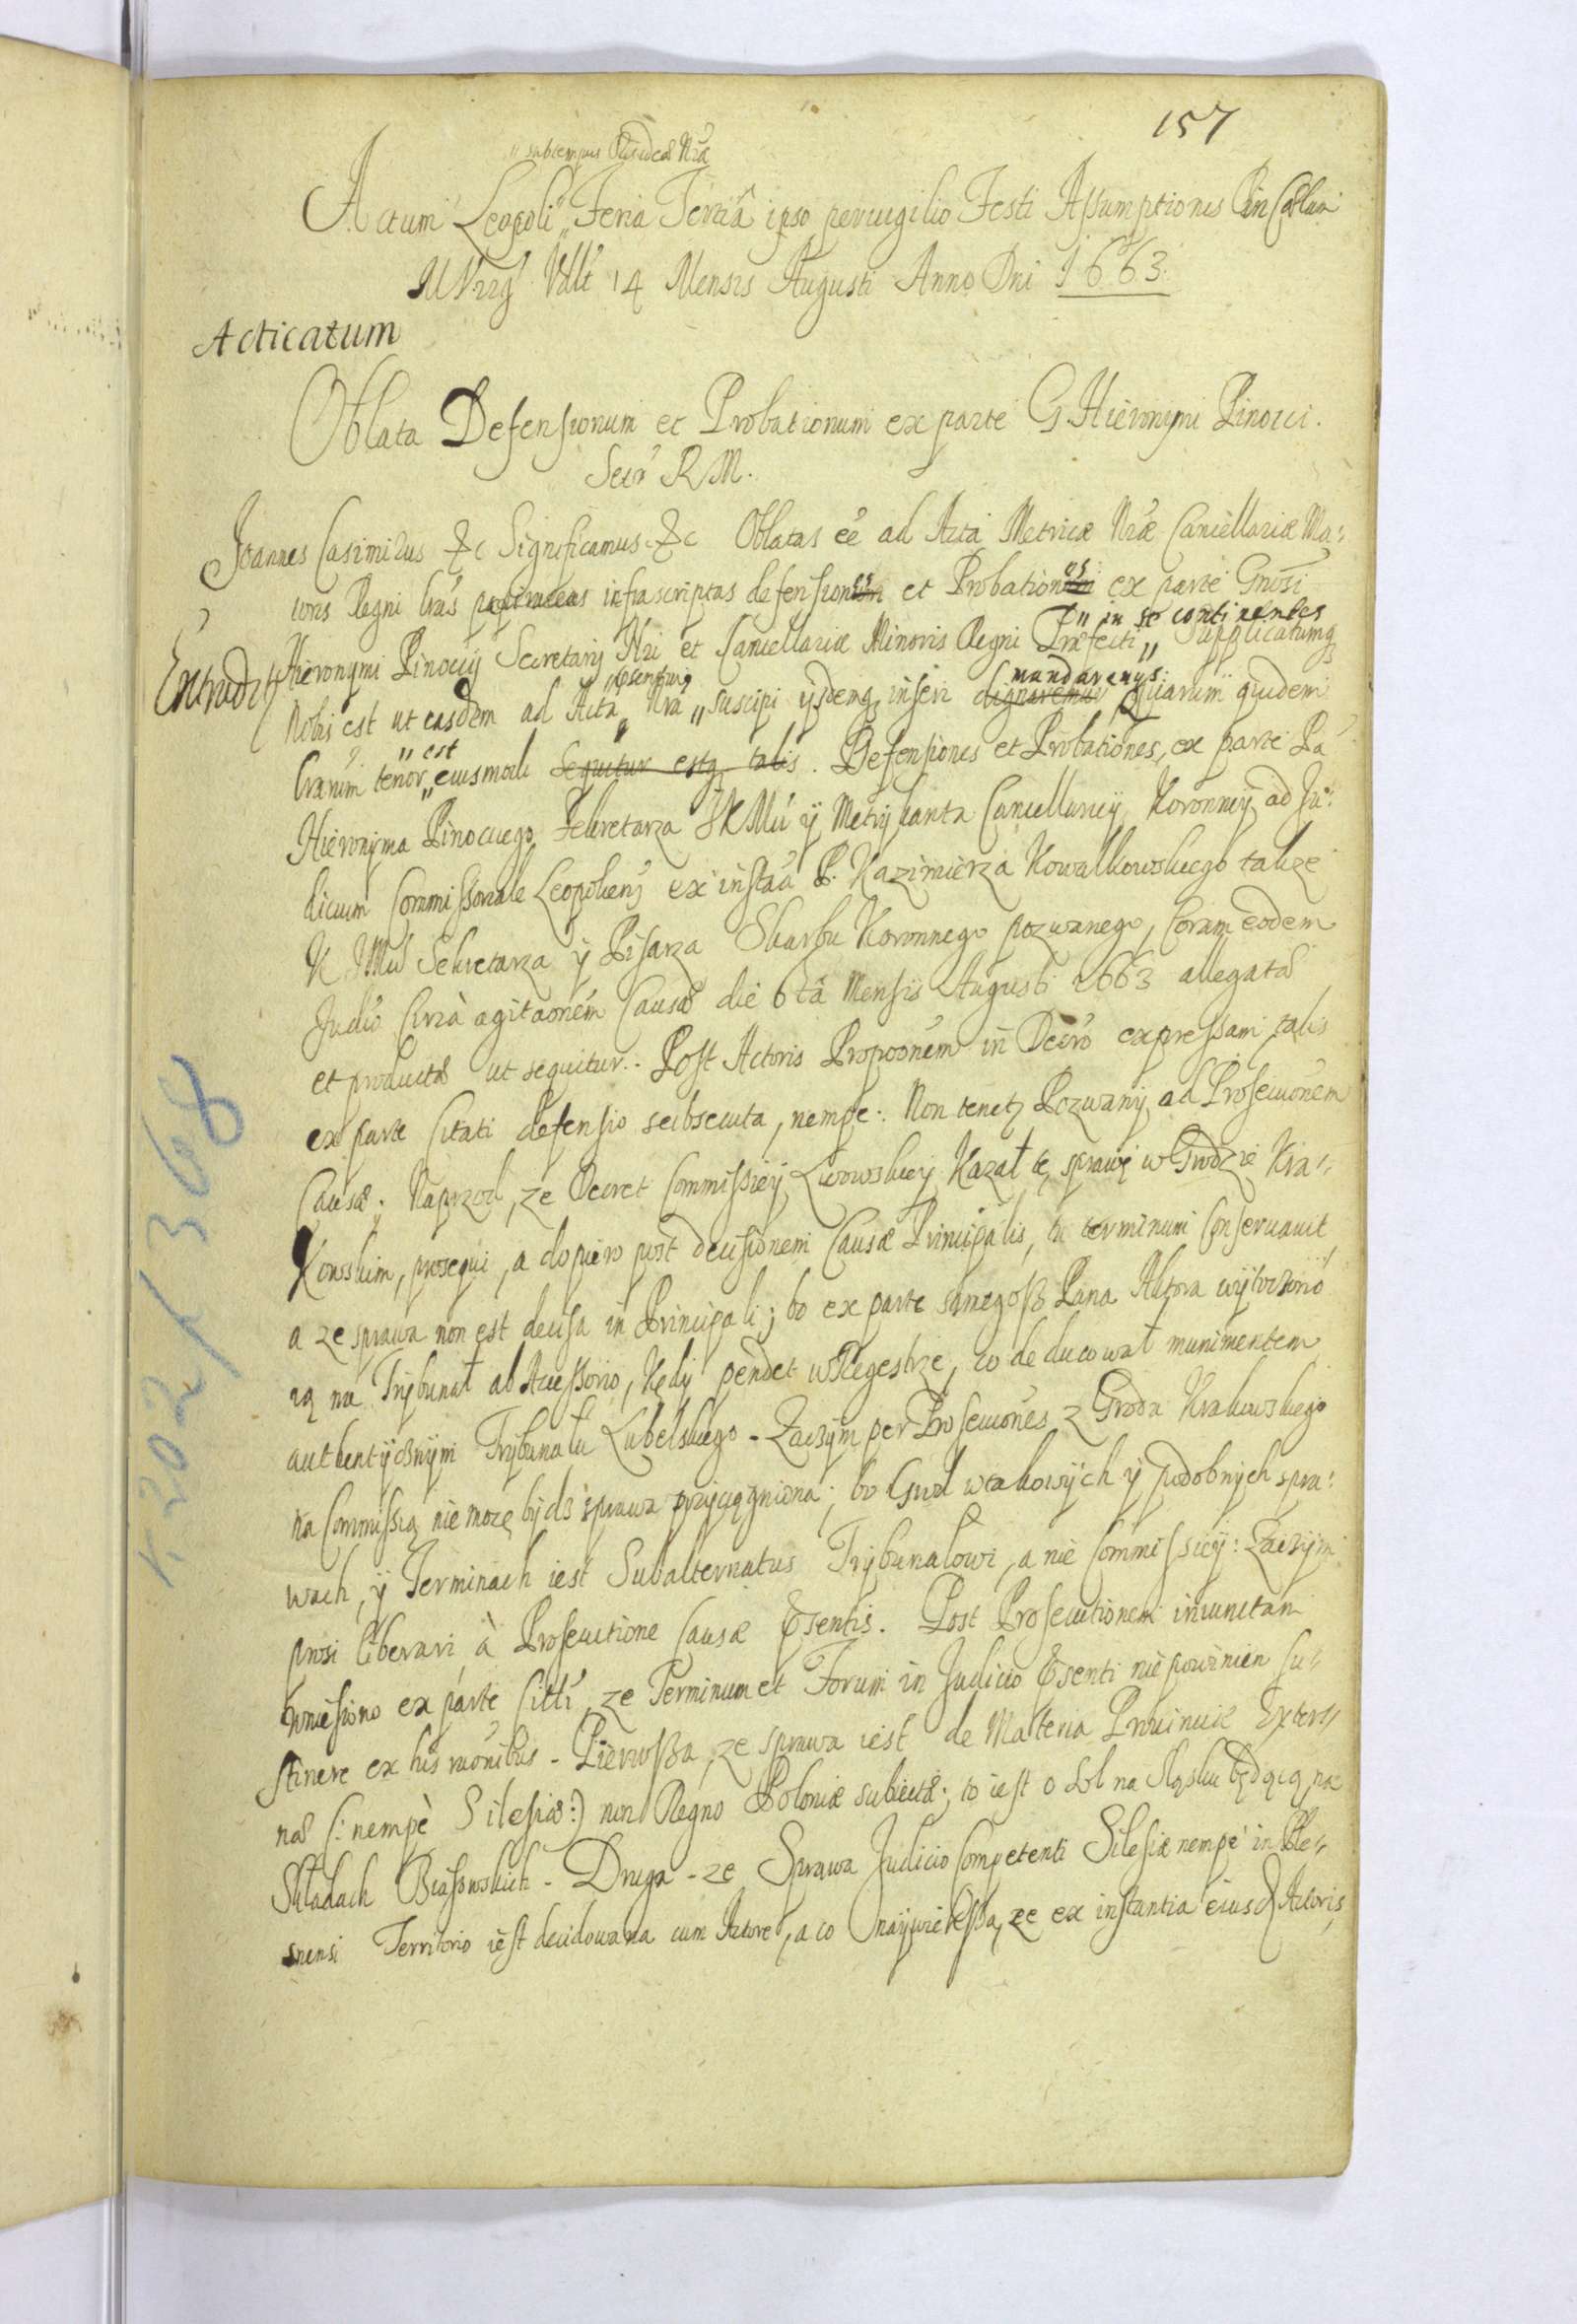 157
" sub tempus Residẽae Nr̃ae
Actum Leopoli " Feria Tertiâ ipso pervigilio Festi Assumptionis in Cœlum
M Virg̃ Vdlt 14 Mensis Augusti Anno Dni 1663.
Acticatum
Oblata Defensionum et Probationum ex parte G. Hieronymi Pinocci.
Secr̃ R M.
Joannes Casimirus &c Significamus &c Oblatas eẽ ad Acta Metricæ Nr̃æ Cancellariæ Ma:
ioris Regni lrãs infrascriptas defensiones et Probationes ex parte Gnõsi
" in se continentes
Hieronymi Pinoccij Secretarij Nri et Cancellariæ Minoris Regni Præfecti " Supplicatumq
Extradit
mandaremus
Nobis est ut easdem ad Acta " Nrã " suscipi ijsdemq inseri dignaremur Quarum quidem
" est
lrarum tenor " eiusmodi sequitur estq talis. Defensiones et Probationes, ex parte Pã
Hieronyma Pinocciego Sekretarza JKMći y Metrykanta Cancellariey Koronney ad Ju:
dicium Commissoriale Leopolien̄ ex instãa P. Kazimierza Kowalkowskiego takze
K JMći Sekretarza y Pisarza Skarbu Koronnego pozwanego, Coram eodem
Judiõ Circà agitaõnem Causæ die 6tâ Mensis Augusti 1663 allegatæ
et productæ ut sequitur. Post Actoris Propoõnem in Decrõ expressam talis
ex parte Citati defensio subsecuta, nempe: Non tenetz Pozwany ad Prosecuõnem
Causæ; Naprzod, ze Decret Commissiey Lwowskiey Kazał tę sprawę w Grodzie Kra"
Kowskim, prosequi, a dopiero post decisionem Causæ Principalis, tu terminum Conservavit
a ze sprawa non est decisa in Principali; bo ex parte samegosz Pana Aktora wytoczono
ią na Trybunał ab Accessorio, Kędy pendet w Regestrze, co deducował munimentem
authentycznym Trybunału Lubelskiego - Zaczym per Prosecuões z Grodu Krakowskiego
na Commissią nie moze bydź sprawa przyciągniona; bo Grod w takowych y podobnych spra:
wach, y Terminach iest Subalternatus Trybunałowi, a nie Commissiey: Zaczym
prosi liberari à Prosecutione Causæ Psentis. Post Prosecutionem iniunctam
wniesiono ex parte Citti, ze Terminum et Forum in Judicio Psenti nie powinien su"
stinere ex his raõnibus - Pierwsza, ze sprawa iest de Materia Provinciæ Exter"
næ (: nempè Silesiæ:) non Regno Poloniæ subiectæ; to iest o Sol na Sląsku będącą na
Składach - Druga - ze Sprawa Judicio Competenti Silesiæ nempe in Ple"
snensi Territorio iest decidowana cum Actore, a co naywiększa, ze ex instantia eiusd Actoris
1. 202/368